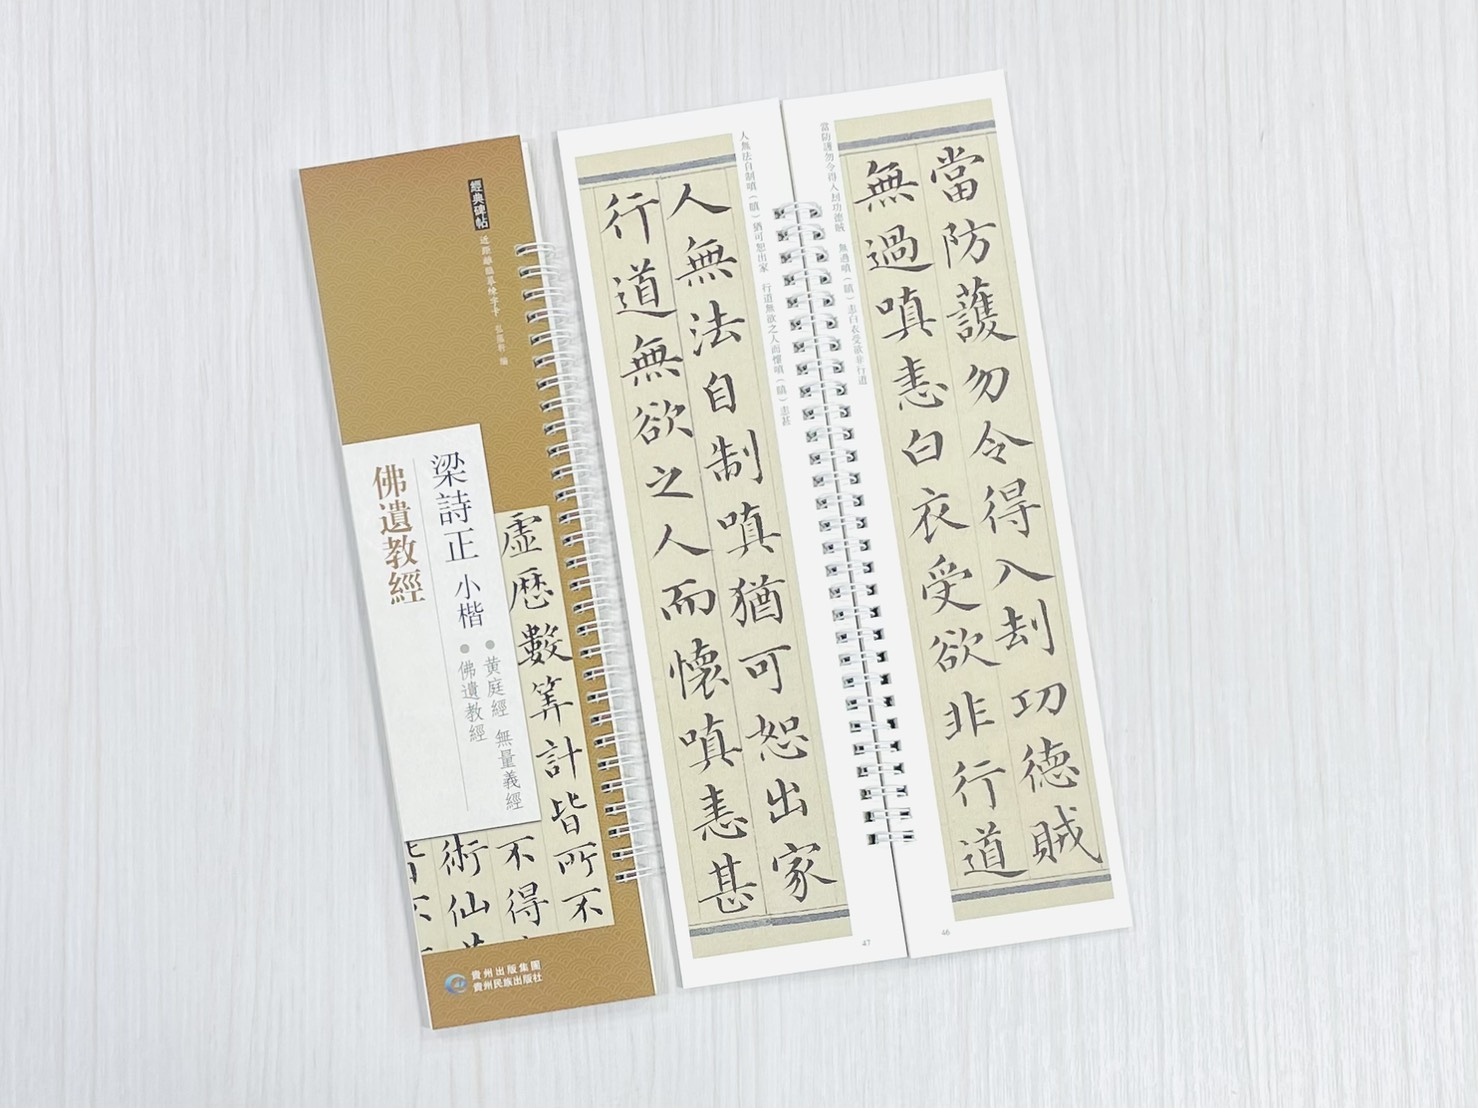 經典碑帖
近距離臨摹練字卡
弘蘊軒 編
梁詩正 小楷
佛遺教經
黃庭經 無量義經
佛遺教經
虛歷數筭計皆所不
不得
術仙
貴州出版集團
貴州民族出版社
當防護勿令得入刦功德賊
無過嗔恚白衣受欲非行道
當防護勿令得入刦功德賊 無過嗔（瞋）恚白衣受欲非行道
46
人無法自制嗔（瞋）猶可恕出家 行道無欲之人而懷嗔（瞋）恚甚
人無法自制嗔猶可恕出家
行道無欲之人而懷嗔恚甚
47